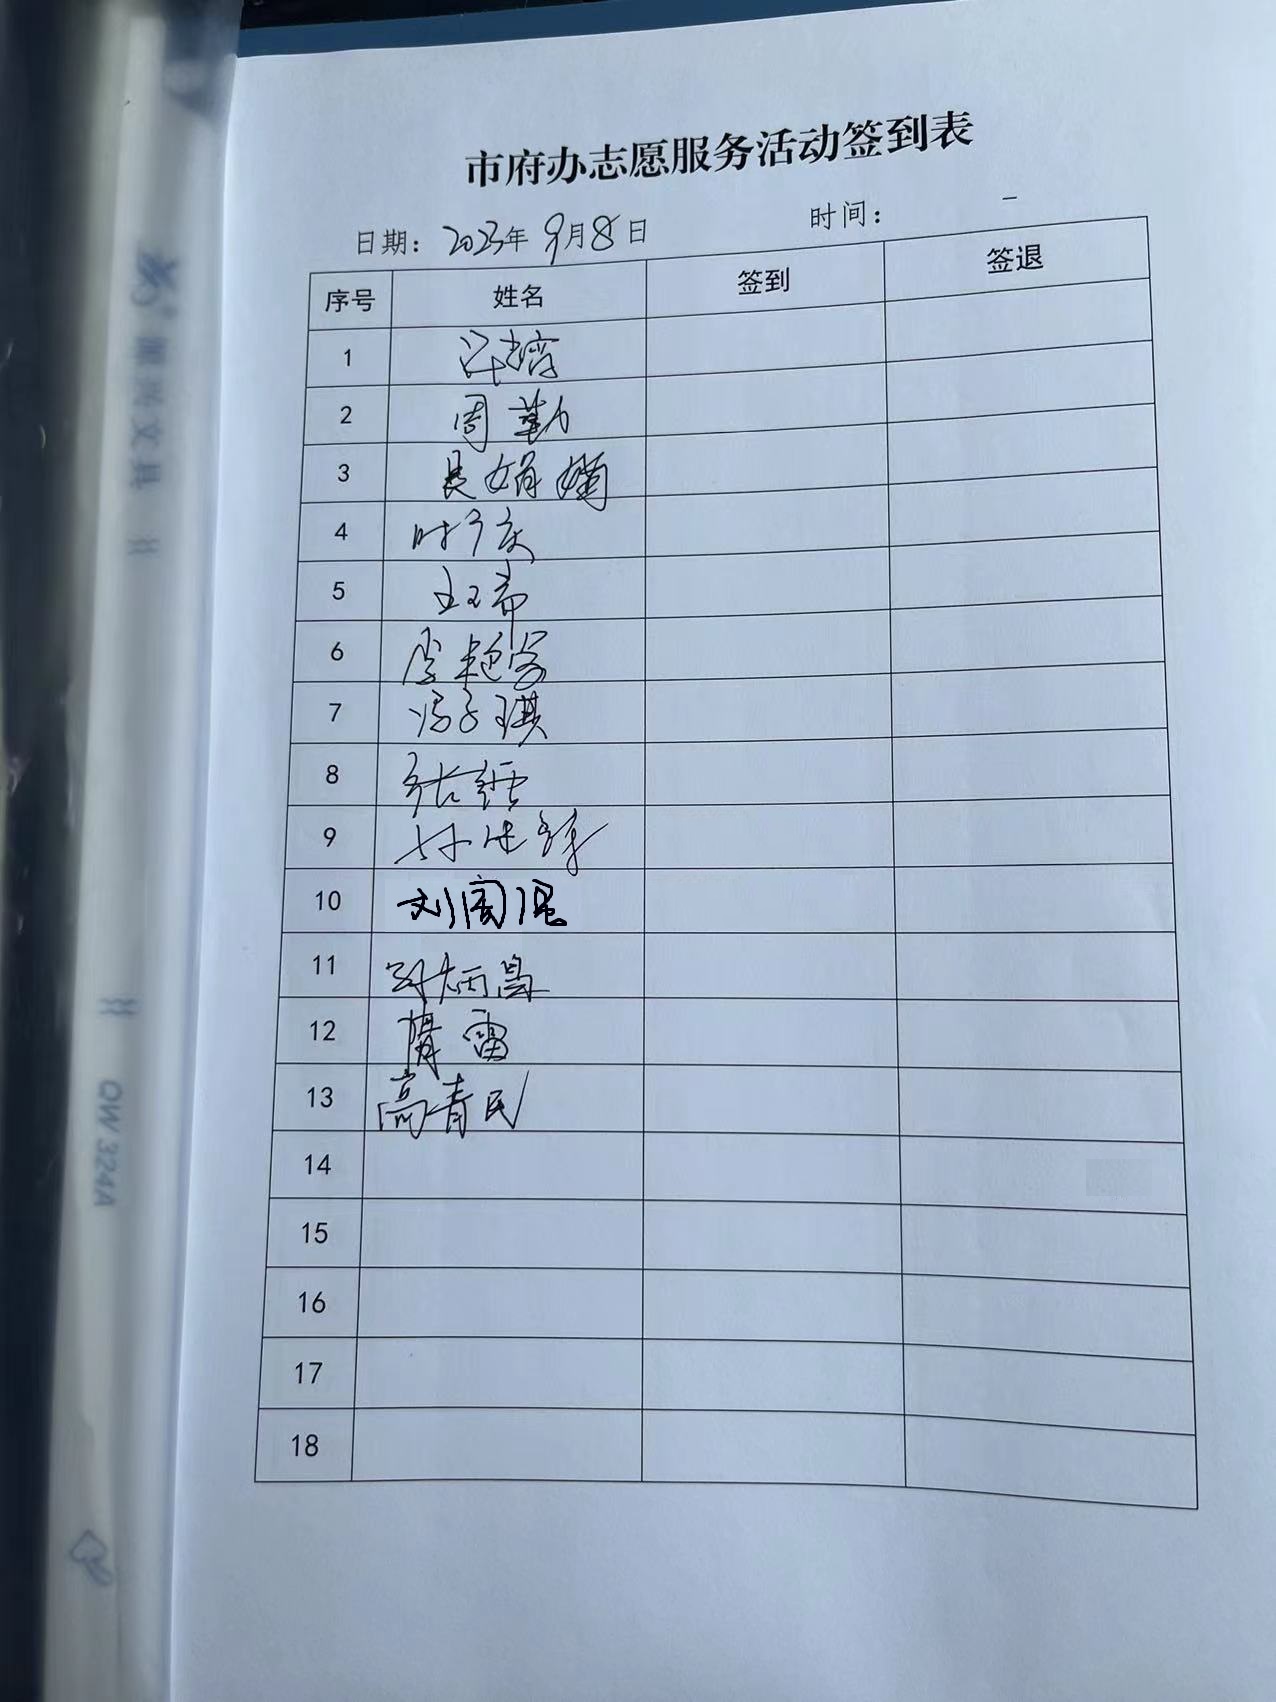 市府办志愿服务活动签到表
日期: 2023年 9月8日 时间:
序号 姓名 签到 签退
1
2 周勤
3 娟
4 时子庆
5
6 李艳容
7 冯子琪
8 张
9
10 刘国强
11 炳昌
12 隋雷
13 高青民
14
15
16
17
18
QW324A